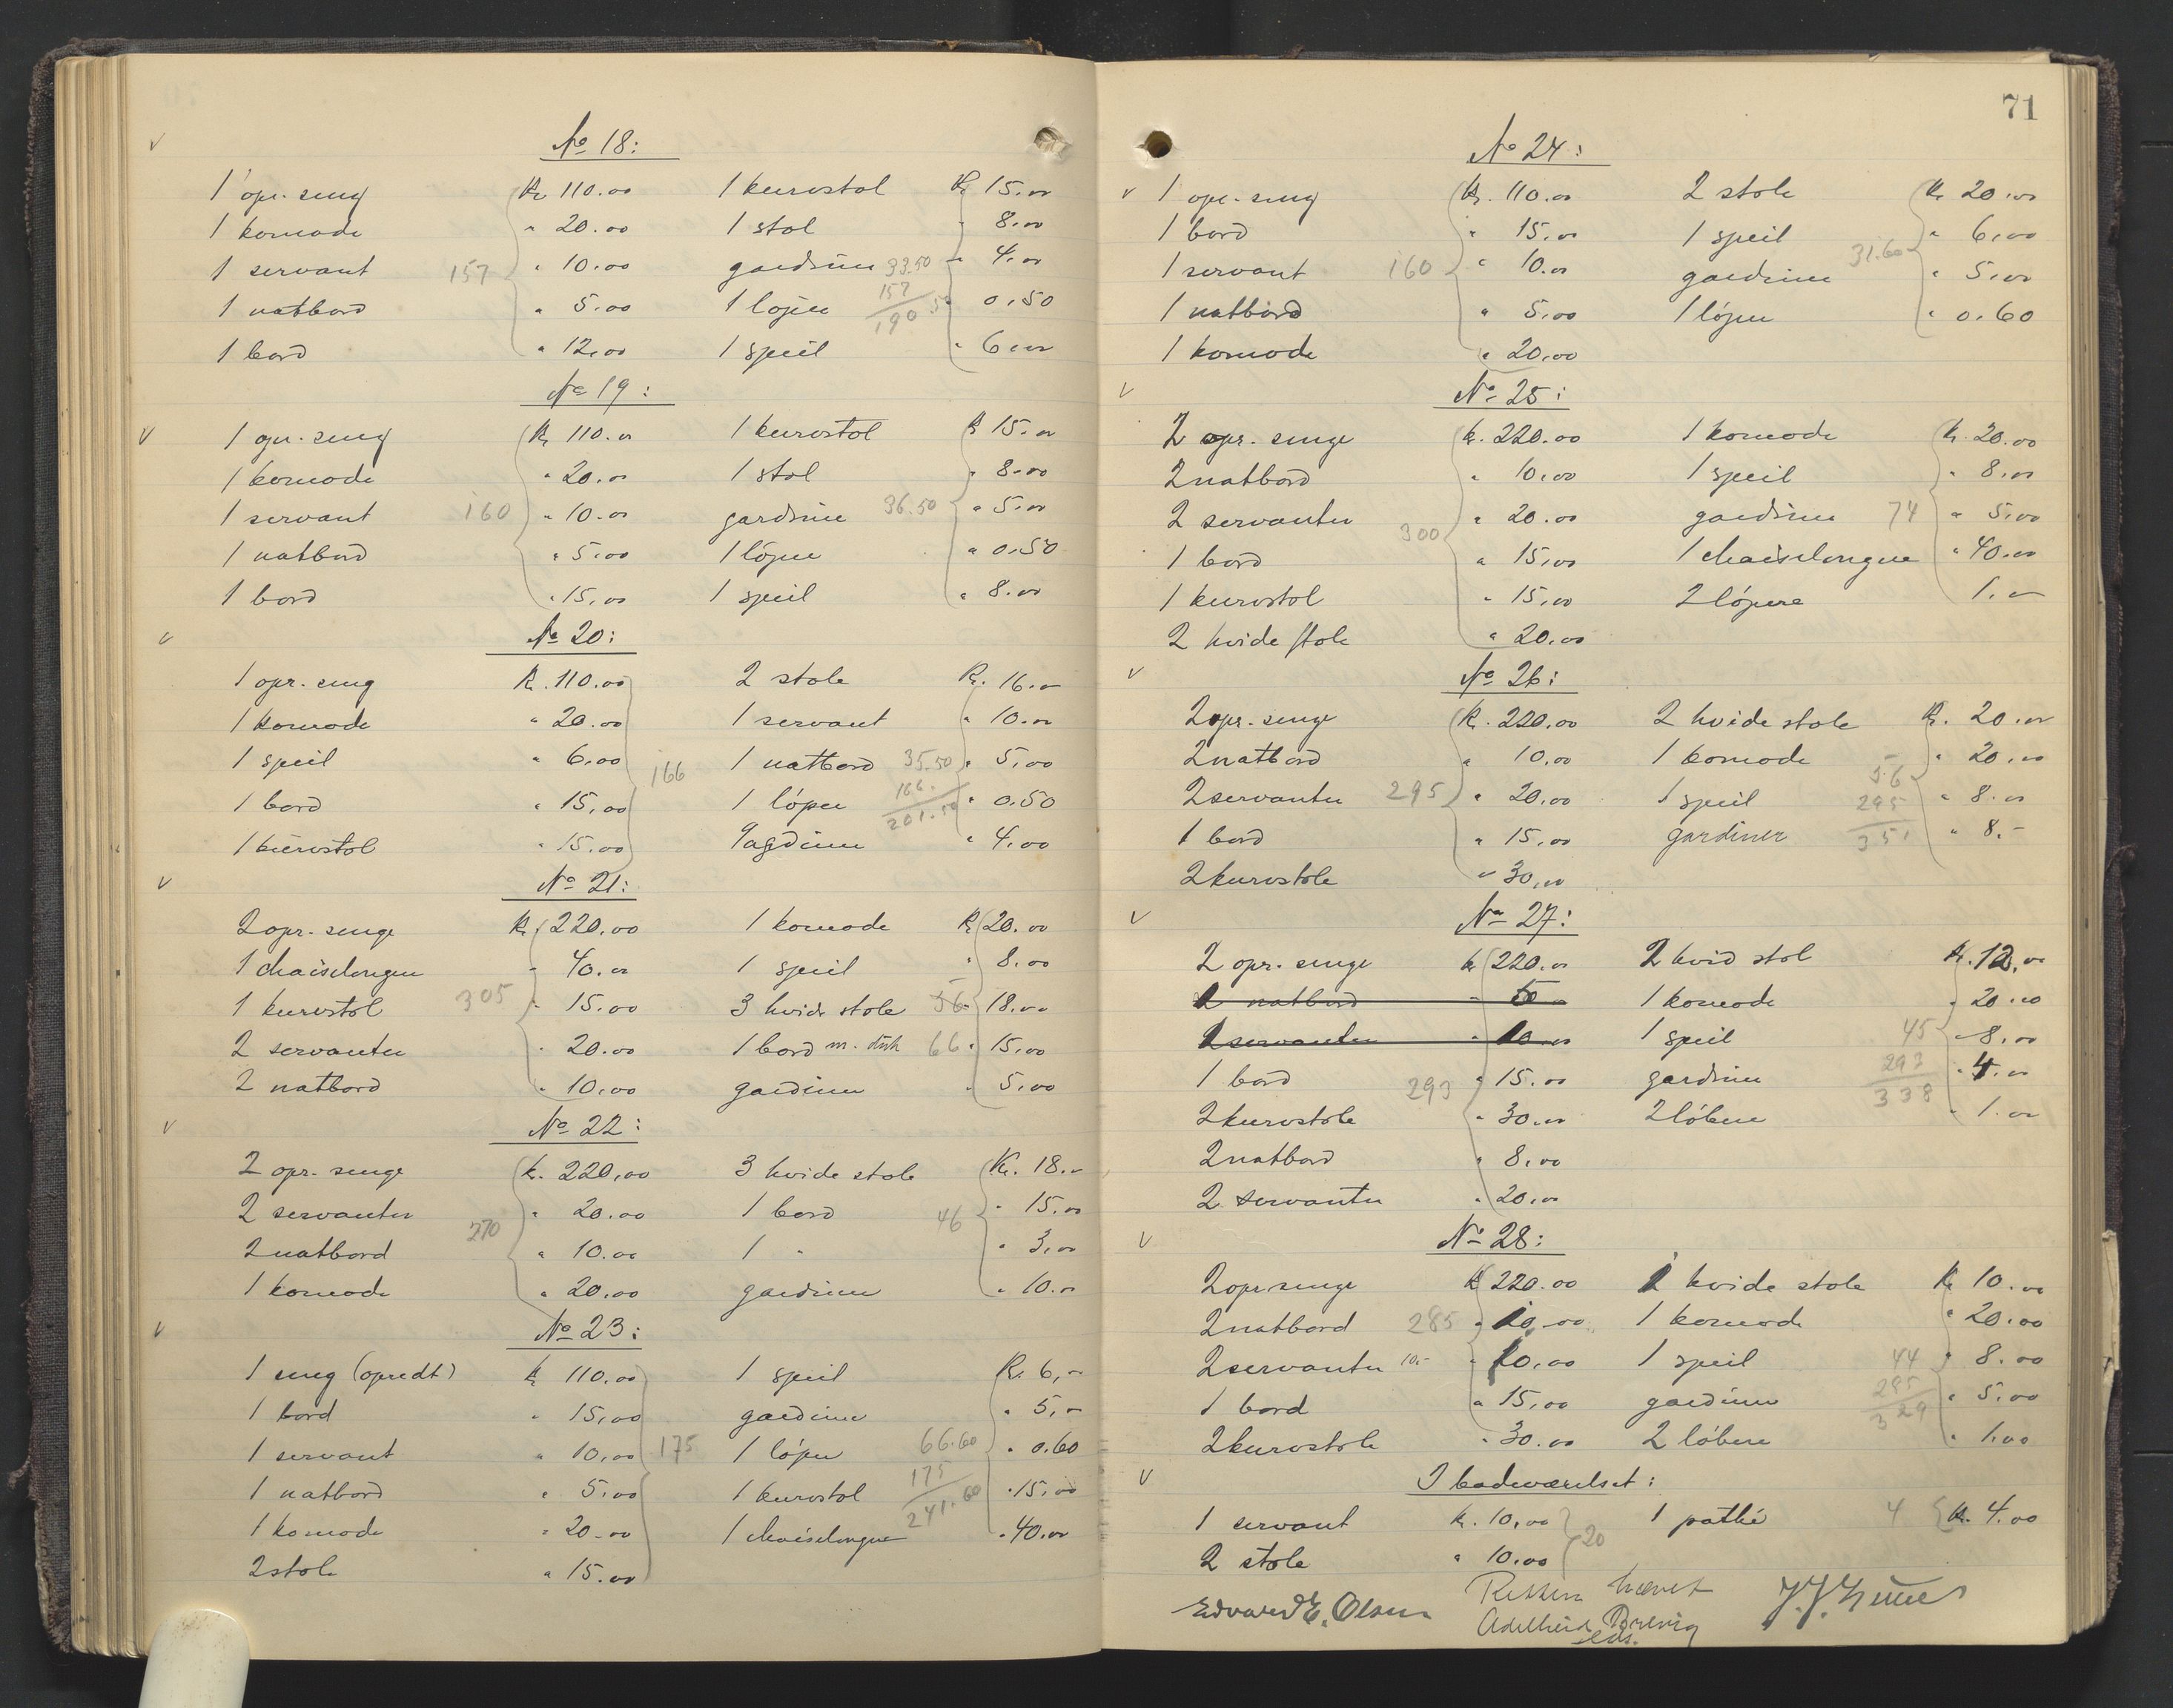 No 18:
1 opr. seng Kr 110.00 1 kurvstol Kr 15.00
1 komode " 20.00 1 stol " 8.00
1 servant 157 " 10.00 gardiner 33.50 " 4.00
1 natbord " 5.00 1 løper 157 " 0.50
190.50
1 bord " 12.00 1 speil " 6.00
No 19:
1 opr. seng Kr 110.00 1 kurvstol Kr 15.00
1 komode " 20.00 1 stol " 8.00
1 servant 160 " 10.00 gardiner 36.50 " 5.00
1 natbord " 5.00 1 løper " 0.50
1 bord " 15.00 1 speil " 8.00
No 20:
1 opr. seng Kr. 110.00 2 stole Kr. 16.00
1 komode " 20.00 1 servant " 10.00
1 speil " 6.00 166 1 natbord 35.50 " 5.00
1 bord " 15.00 1 løper 166. " 0.50
201.50
1 kurvstol " 15.00 gardiner " 4.00
No 21:
2 opr. senge Kr. 220.00 1 komode Kr 20.00
1 chaiselongue " 40.00 1 speil " 8.00
1 kurvstol 305 " 15.00 3 hvide stole 56 " 18.00
2 servanter " 20.00 1 bord m. duk 66 " 15.00
2 natbord " 10.00 gardiner " 5.00
No 22:
2 opr. senge Kr. 220.00 3 hvide stole Kr. 18.-
2 servanter 270 " 20.00 1 bord 46 " 15.00
2 natbord " 10.00 1 " " 3.00
1 komode " 20.00 gardiner " 10.00
No 23:
1 seng (opredt) Kr 110.00 1 speil Kr. 6,-
1 bord " 15.00 gardiner " 5,-
1 servant " 10.00 175 1 løper 66.60 " 0.60
1 natbord " 5.00 1 kurvstol 175 " 15.00
241.60
1 komode " 20.00 1 chaiselongue " 40.00
2 stole " 15.00
71
No 24:
1 opr. seng Kr. 110.00 2 stole Kr 20.00
1 bord " 15.00 1 speil 31.60 " 6.00
1 servant 160 " 10.00 gardiner " 5.00
1 natbord " 5.00 1 løper " 0.60
1 komode " 20.00
No 25:
2 opr. senge Kr. 220.00 1 komode Kr. 20.00
2 natbord " 10.00 1 speil " 8.00
2 servanter 300 " 20.00 gardiner 74 " 5.00
1 bord " 15.00 1 chaiselongue " 40.00
1 kurvstol " 15.00 2 løpere 1.-
2 hvide stole " 20.00
No 26:
2 opr. senge Kr. 220.00 2 hvide stole Kr. 20.00
2 natbord " 10.00 1 komode 56 " 20.00
2 servanter 295 " 20.00 1 speil 295 " 8.00
1 bord " 15.00 gardiner 351 " 8.-
2 kurvstole " 30.00
No 27:
2 opr. senge Kr 220.00 2 hvid stol Kr. 12.00
2 natbord 1 komode " 20.00
2 servanter " 10.00 1 speil 45 " 8.00
1 bord 293 " 15.00 gardiner 293 " 4.00
2 kurvstole " 30.00 2 löbere 338 " 1.00
2 natbord " 8.00
2 servanter " 20.00
No 28:
2 opr senge Kr 220.00 2 hvide stole Kr 10.00
2 natbord 285 " 10.00 1 komode " 20.00
2 servanter 10.- " 10.00 1 speil 44 " 8.00
1 bord " 15.00 gardiner 285 " 5.00
2 kurvstole " 30.00 2 löbere 329 " 1.00
I badeværelset:
1 servant Kr. 10.00 1 pathé 4 Kr. 4.00
2 stole " 10.00 20
Edvard E. Olsen
Adelheid Brevig